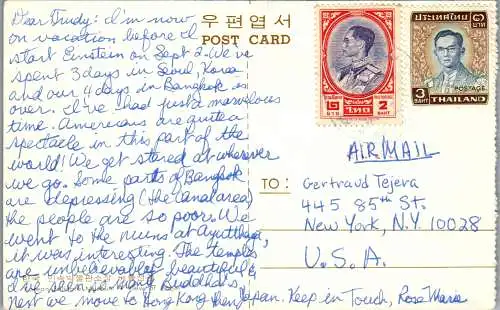 우편엽서
POST CARD
Dear Trudy: I'm now
on vacation before I
start Einstein on Sept 2. We've
spent 3 days in Seoul, Korea
and our 4 days in Bangkok is
over. I've had just a marvelous
time. Americans are quite a
spectacle in this part of the
world! We get stared at wherever
we go. Some parts of Bangkok
are depressing (the canal area)
the people are so poor. We
went to the ruins at Ayutthaya,
it was interesting. The temples
are unbelievably beautiful &
I've seen so many Buddha's,
next we move to Hong Kong then Japan. Keep in Touch, Rose Marie
ประเทศไทย
๓ บาท
3 BAHT
POSTAGE
THAILAND
๒ บาท
ไทย
2 BAHT
AIR MAIL
TO:
Gertraud Tejera
445 85th St.
New York, N.Y. 10028
U.S.A.